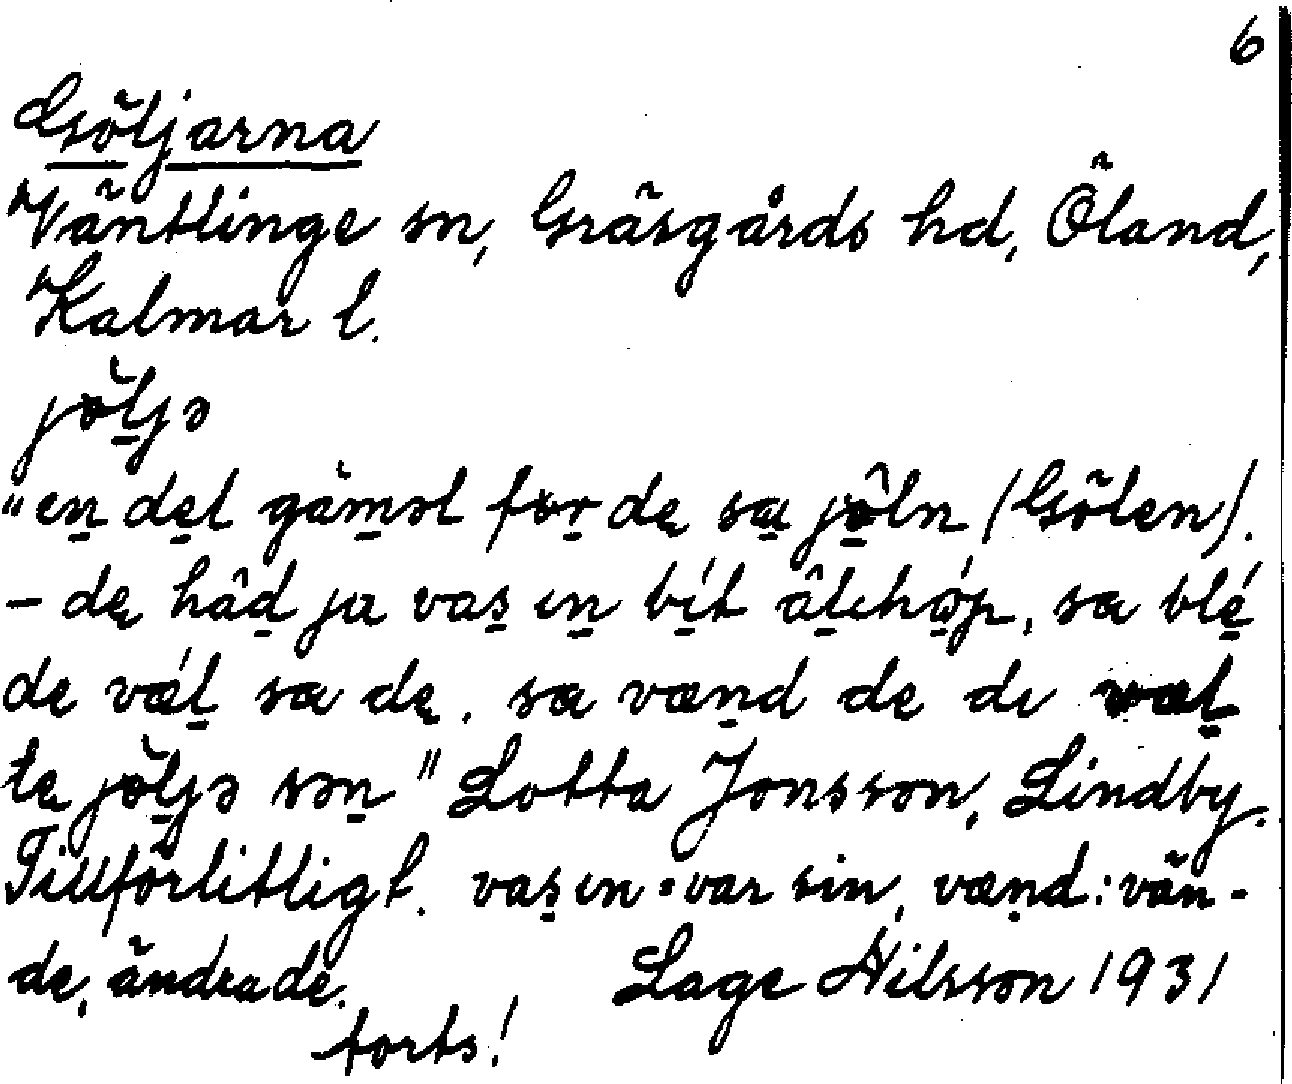 6
Göljarna
Väntlinge sn, Gräsgårds hd, Öland,
Kalmar l.
jöljə
"en del gàməl forde sa jöln (Gölen).
– de hâd ja vas ın bít âlıhóp, sa blé
de vǽl sa de. sa vænd de dı væl
te jöljə sən" Lotta Jonsson, Lindby.
Tillförlitligt. vas ın: var sin, vænd: vän-
de, ändrade. Lage Nilsson 1931
forts!